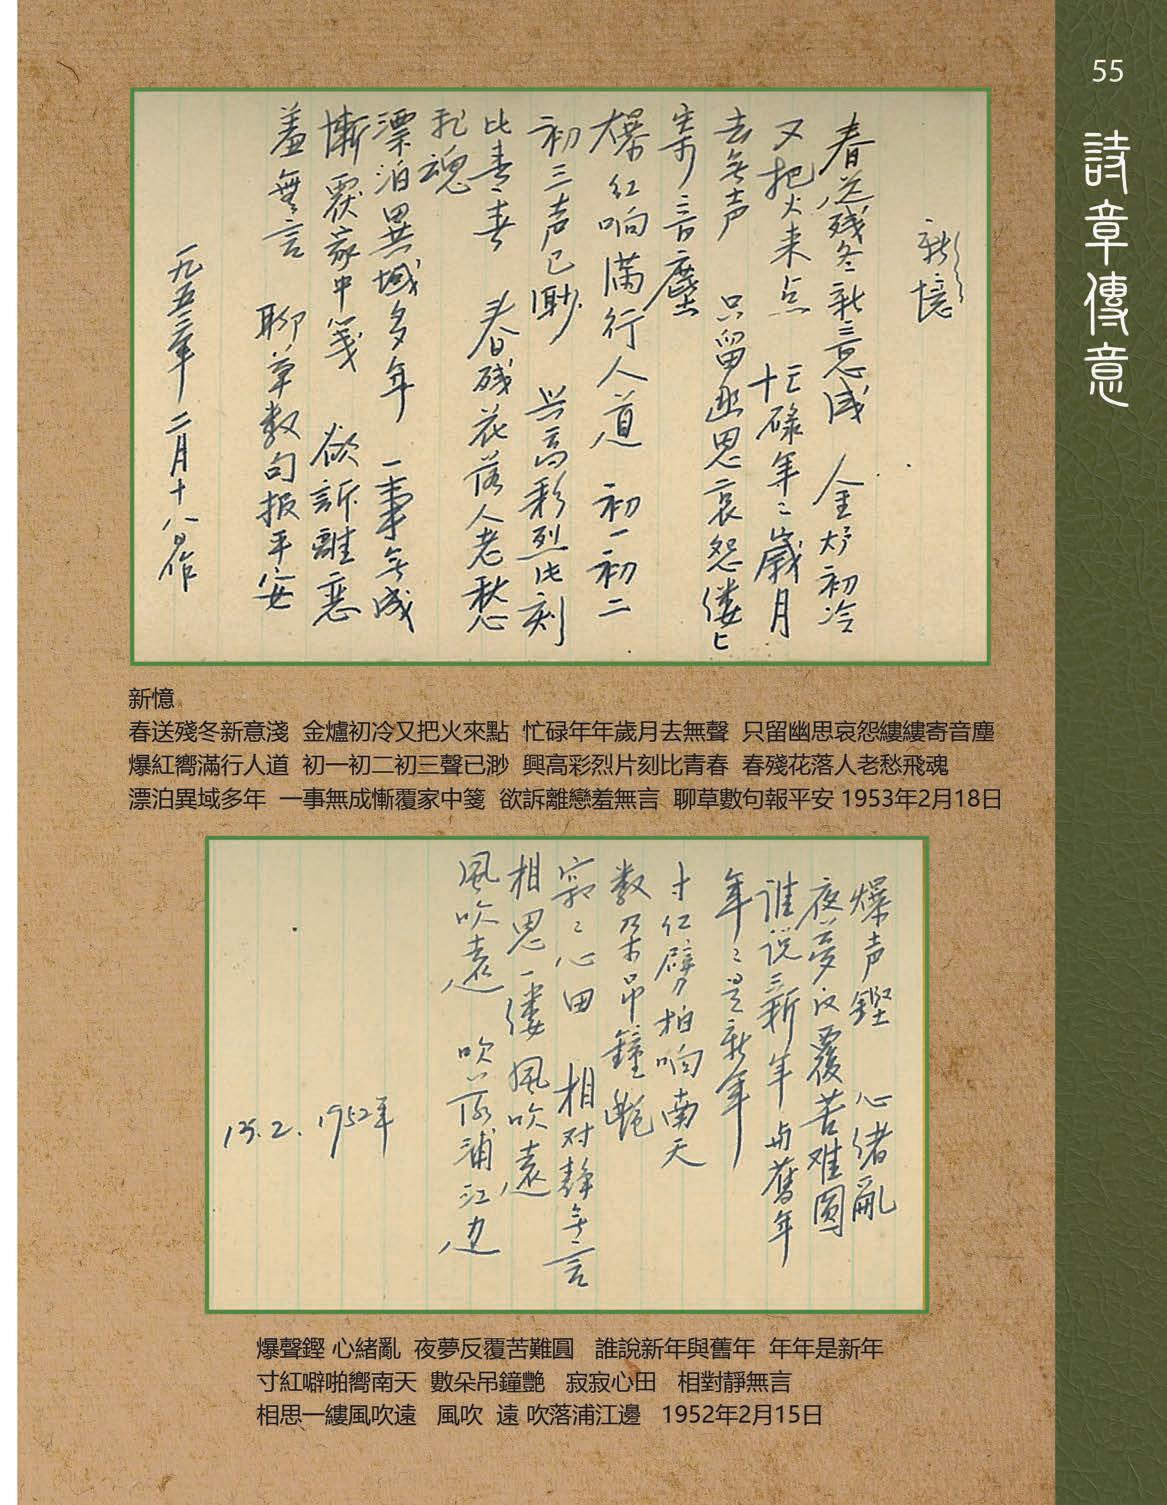 55
詩章傳意
新憶
春送残冬新意浅 金炉初冷
又把火来点 忙碌年々歲月
去無声 只留幽思哀怨缕々
寄音塵
爆红响满行人道 初一初二
初三声已渺 兴高彩烈片刻
比青春 春残花落人老愁
飛魂
漂泊異域多年 一事無成
慚覆家中箋 欲訴離恋
羞無言 聊草数句报平安
一九五三年二月十八日作
新憶
春送殘冬新意淺 金爐初冷又把火來點 忙碌年年歲月去無聲 只留幽思哀怨縷縷寄音塵
爆紅嚮滿行人道 初一初二初三聲已渺 興高彩烈片刻比青春 春殘花落人老愁飛魂
漂泊異域多年 一事無成慚覆家中箋 欲訴離戀羞無言 聊草數句報平安 1953年2月18日
爆声鏗 心绪亂
夜夢反覆苦难圆
谁说新年与舊年
年々是新年
寸红劈拍响南天
数朵吊鐘艷
寂々心田 相对静無言
相思一缕風吹遠
風吹遠 吹落浦江边
15.2.1952年
爆聲鏗 心緒亂 夜夢反覆苦難圓 誰說新年與舊年 年年是新年
寸紅噼啪嚮南天 數朵吊鐘艷 寂寂心田 相對靜無言
相思一縷風吹遠 風吹 遠 吹落浦江邊 1952年2月15日